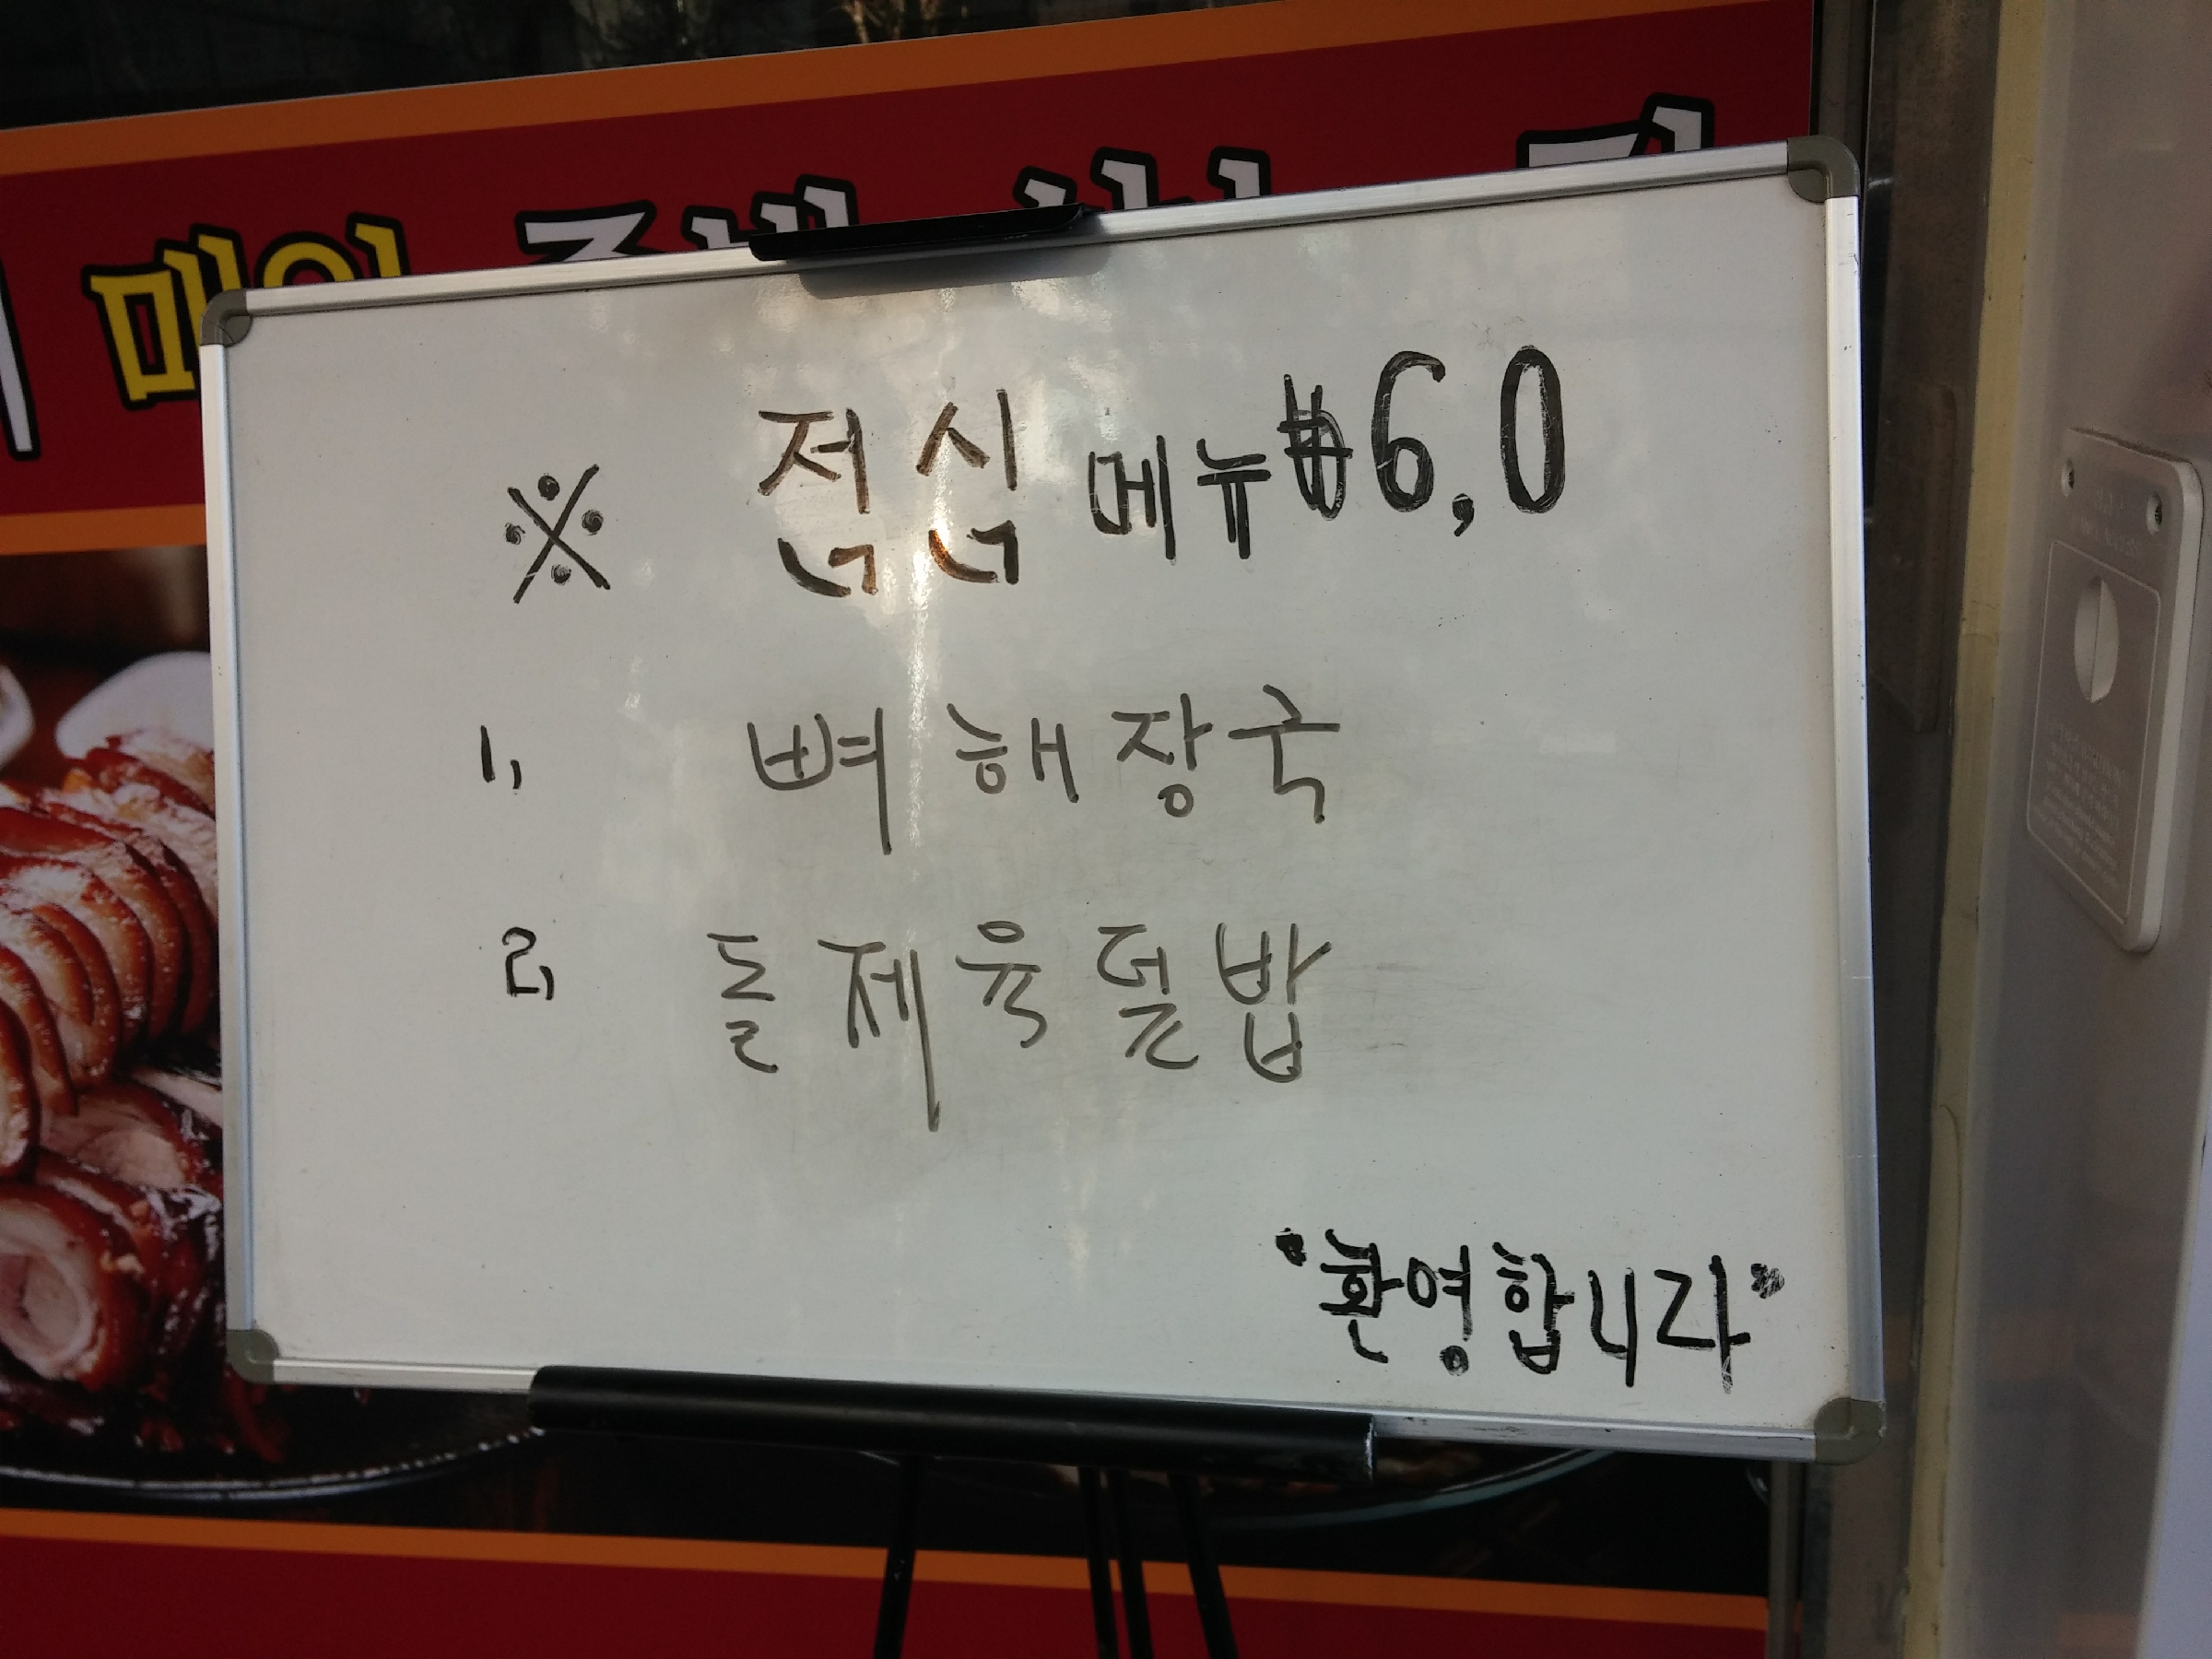 매일
※ 점심 메뉴 ₩6,0
1, 뼈 해장국
2, 돌제육덮밥
"환영합니다"